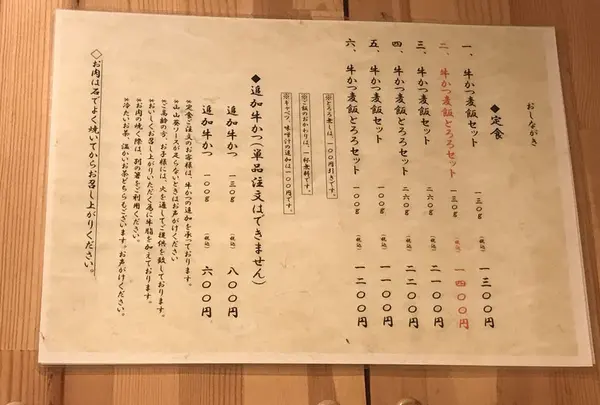 おしながき
◆定食
一、牛かつ麦飯セット 一三〇g (税込) 一三〇〇円
二、牛かつ麦飯とろろセット 一三〇g (税込) 一四〇〇円
三、牛かつ麦飯セット 二六〇g (税込) 二一〇〇円
四、牛かつ麦飯とろろセット 二六〇g (税込) 二二〇〇円
五、牛かつ麦飯セット 一〇〇g (税込) 一一〇〇円
六、牛かつ麦飯とろろセット 一〇〇g (税込) 一二〇〇円
※とろろ無しは、一〇〇円引きです。
※ご飯のおかわりは、一杯無料です。
※キャベツ、味噌汁の追加は一〇〇円です。
◆追加牛かつ(単品注文はできません)
追加牛かつ 一三〇g (税込) 八〇〇円
追加牛かつ 一〇〇g (税込) 六〇〇円
※定食ご注文のお客様は、牛かつの追加を承っております。
※山葵ソースが足らないときはお声がけください
※ご高齢の方、お子様には、火を通してご提供を致しております。
※おいしくお召し上がりいただく為に牛脂を加えております。
※お肉の焼く際は、別の箸をご利用ください。
※冷たいお茶、温かいお茶どちらもございます。お声がけください。
◇お肉は石でよく焼いてからお召し上がりください。